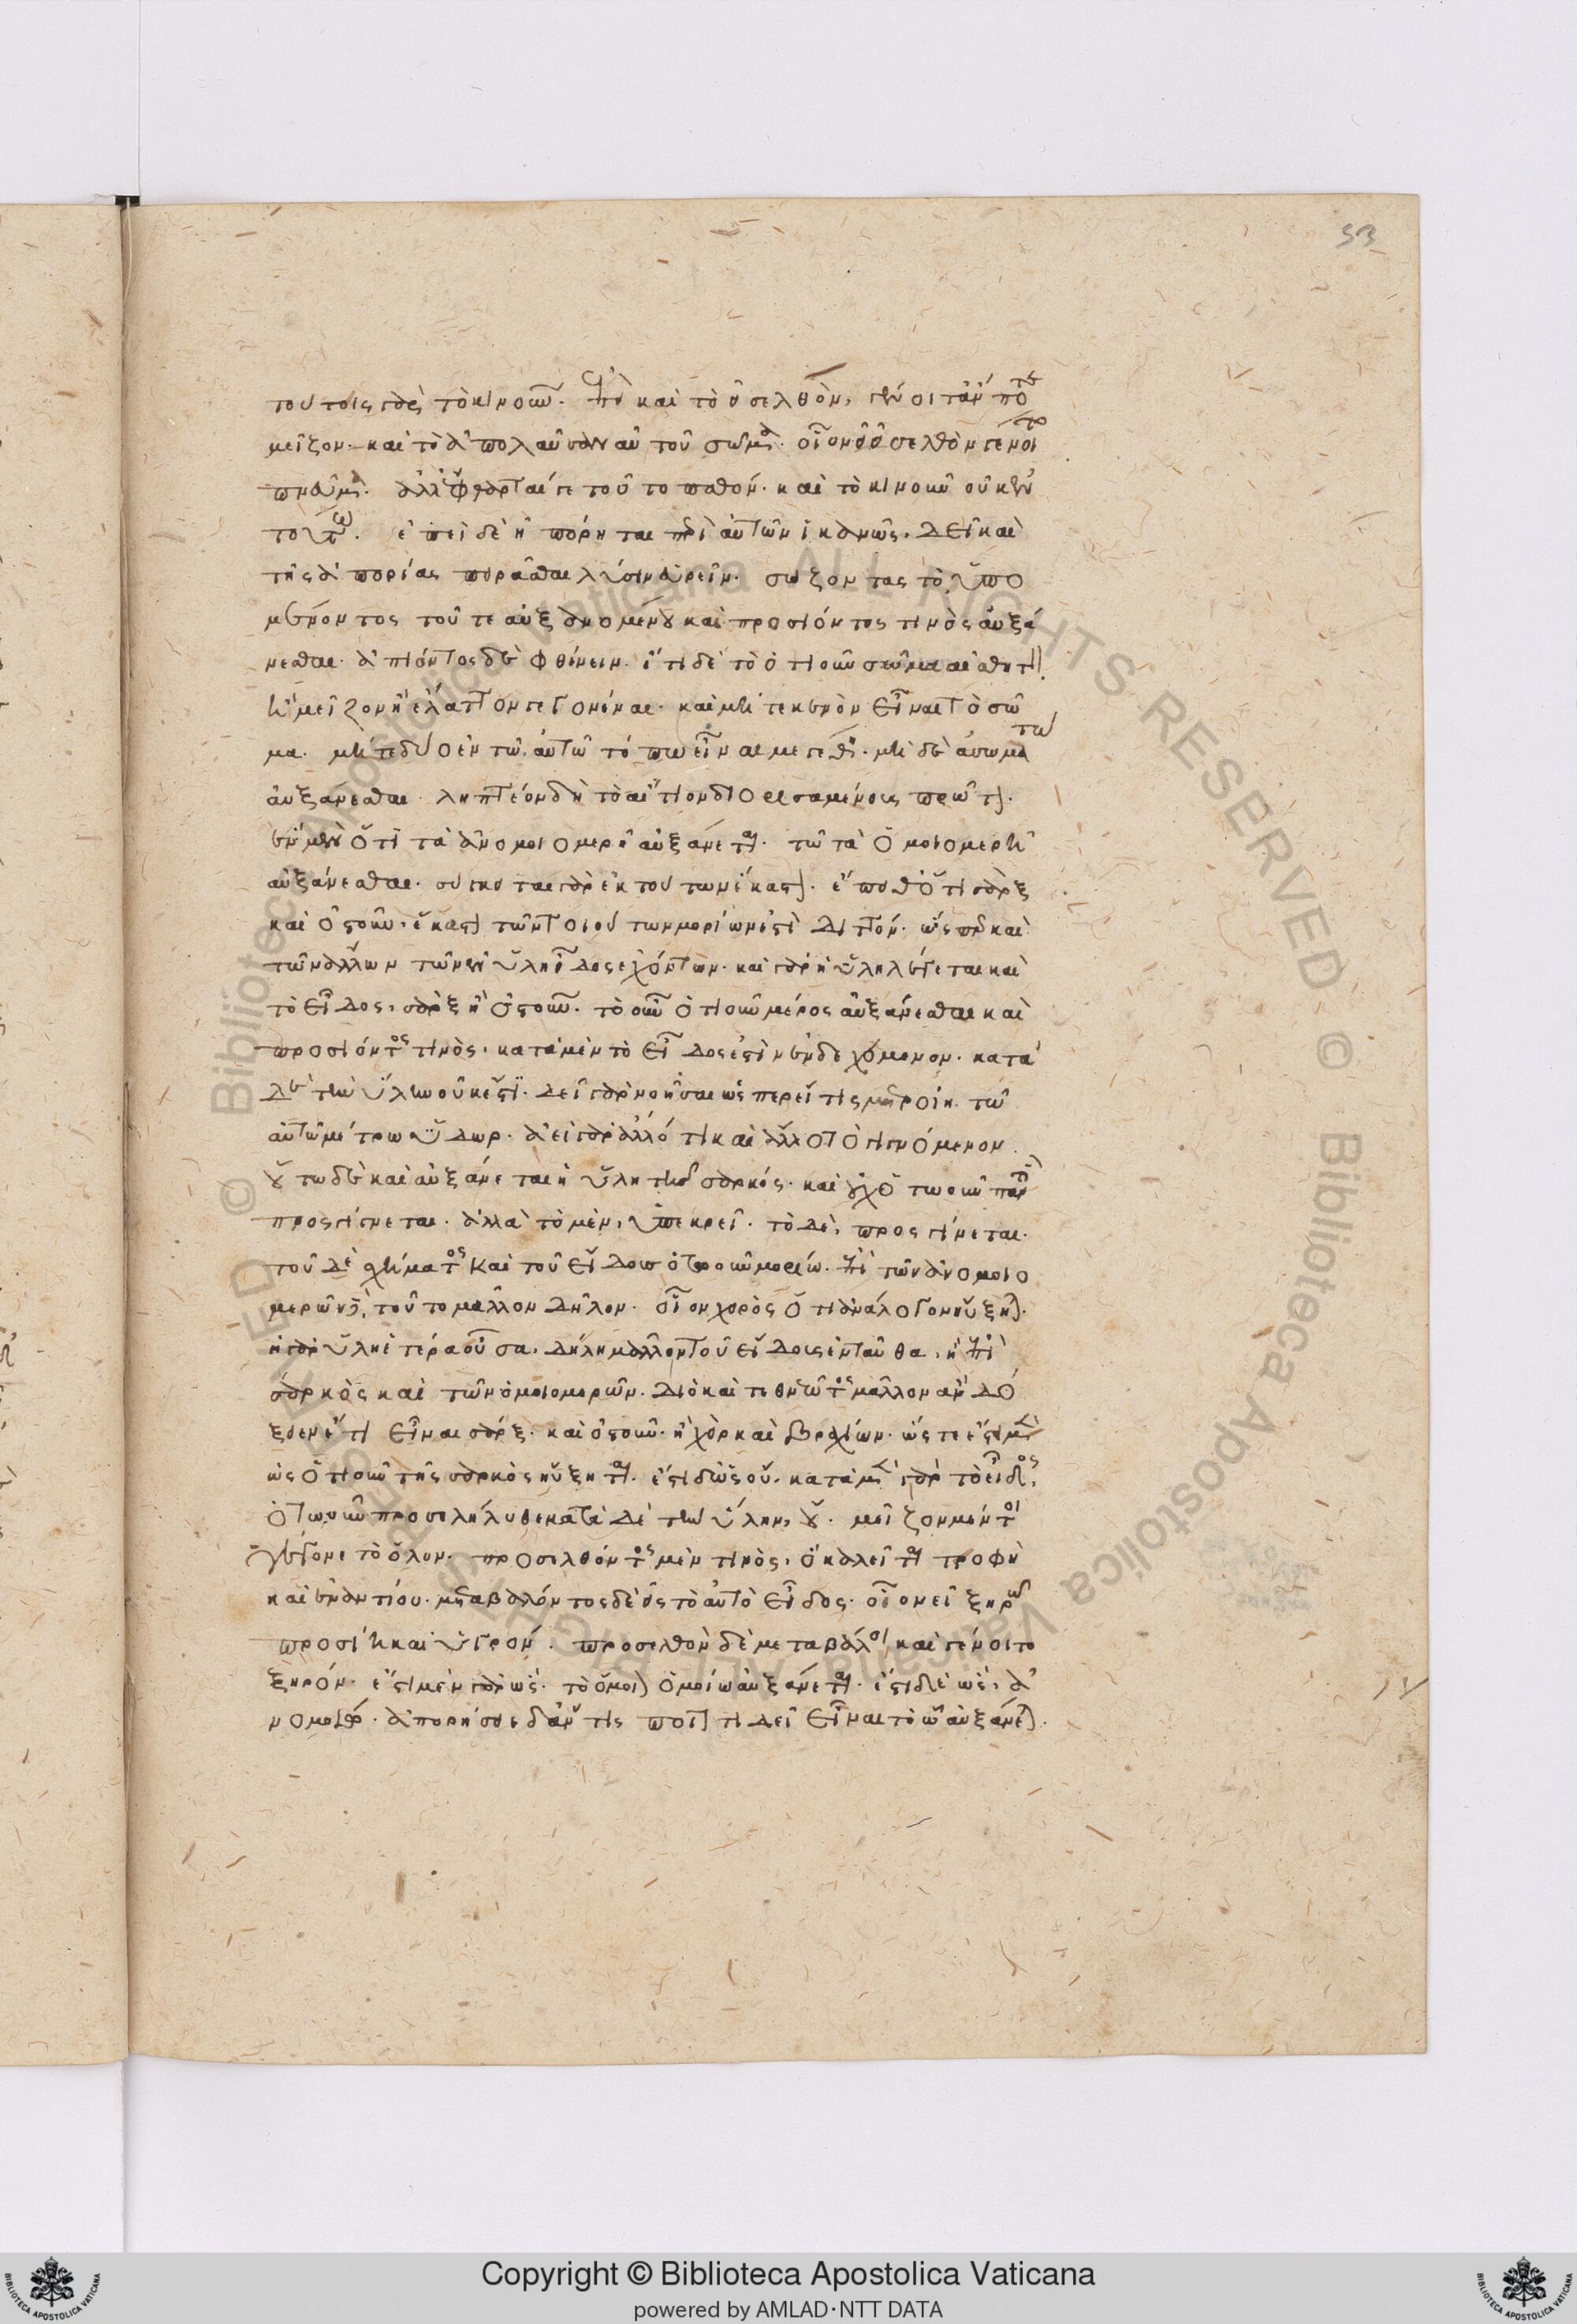 53
τούτοις γὰρ τὸ κινοῦν. ἐπεὶ καὶ τὸ εἰσελθὸν, γένοιτ' ἄν ποτε
μεῖζον. καὶ τὸ ἀπολαῦσαν αὐτοῦ σῶμα. οἷον εἰ εἰσελθὸν γένοιτο
πνεῦμα. ἀλλ' ἔφθαρταί γε τοῦτο παθόν. καὶ τὸ κινοῦν οὐκ ἐν
τούτω. ἐπεὶ δὲ ἠπόρηται περὶ αὐτῶν ἱκανῶς, δεῖ καὶ
τῆς ἀπορίας πειρᾶσθαι λύσιν εὑρεῖν. σώζοντας τὸ ὑπο
μένοντός τοῦ τε αὐξανομένου καὶ προσιόντος τινὸς αὐξά
νεσθαι. ἀπιόντος δὲ φθίνειν. ἔτι δὲ τὸ ὁτιοῦν σῶμα αἰσθητὸν
ἢ μεῖζον ἢ ἔλαττον γεγονέναι. καὶ μήτε κενὸν εἶναι τὸ σῶ
μα. μήτε δύο ἐν τῶ αὐτῶ τόπω εἶναι μεγέθη. μηδὲ ἀσωμάτω
αὐξάνεσθαι. ληπτέον δὴ τὸ αἴτιον διορισαμένοις πρῶτον.
ἓν μὲν ὅτι τὰ ἀνομοιομερῆ αὐξάνεται. τῶ τὰ ὁμοιομερῆ
αὐξάνεσθαι. σύγκειται γὰρ ἐκ τούτων ἕκαστον. ἔπειθ' ὅτι σὰρξ
καὶ ὀστοῦν, ἕκαστον τῶν τοιούτων μορίων ἐστὶ διττόν. ὥσπερ καὶ
τῶν ἄλλων τῶν ἐν ὕλη εἶδος ἐχόντων. καὶ γὰρ ἡ ὕλη λέγεται καὶ
τὸ εἶδος, σὰρξ ἢ ὀστοῦν. τὸ οὖν ὁτιοῦν μέρος αὐξάνεσθαι καὶ
προσιόντος τινὸς, κατὰ μὲν τὸ εἶδος ἐστὶν ἐνδεχόμενον. κατὰ
δὲ τὴν ὕλην οὐκ ἔστι. δεῖ γὰρ νοῆσαι ὥσπερ εἴ τις μετροίη τῶ
αὐτῶ μέτρω ὕδωρ. ἀεὶ γὰρ ἄλλό τι καὶ ἄλλο τὸ γιγνόμενον.
οὕτω δὲ καὶ αὐξάνεται ἡ ὕλη τῆς σαρκός. καὶ οὐχ ὁτωοῦν παντὶ
προσγίγνεται. ἀλλὰ τὸ μὲν, ὑπεκρεῖ. τὸ δὲ, προσγίνεται.
τοῦ δὲ σχήματος καὶ τοῦ εἴδους ὁτωοῦν μορίω. ἐπὶ τῶν ἀνομοιο
μερῶν δὲ, τοῦτο μᾶλλον δῆλον. οἷον χειρὸς ὅτι ἀνάλογον ηὔξηται.
ἡ γὰρ ὕλη ἑτέρα οὖσα, δήλη μᾶλλον τοῦ εἴδους ἐνταῦθα, ἢ ἐπὶ
σαρκὸς καὶ τῶν ὁμοιομερῶν. διὸ καὶ τεθνεῶτος μᾶλλον ἂν δό
ξειεν ἔτι εἶναι σάρξ. καὶ ὀστοῦν. ἢ χεὶρ καὶ βραχίων. ὥστε ἔστι μὲν
ὡς ὁτιοῦν τῆς σαρκὸς ηὔξηται. ἔστι δ' ὡς οὔ. κατὰ μὲν γὰρ τὸ εἶδος,
ὁτωοῦν προσελήλυθε κατὰ δὲ τὴν ὕλην, οὔ. μεῖζον μέντοι
γέγονε τὸ ὅλον. προσελθόντος μὲν τινὸς, ὃ καλεῖται τροφὴ
καὶ ἐναντίου. μεταβαλόντος δὲ εἰς τὸ αὐτὸ εἶδος. οἷον εἰ ξηρῶ
προσίη καὶ ὑγρόν. προσελθὸν δὲ μεταβάλοι καὶ γένοιτο
ξηρόν. ἔστι μὲν γὰρ ὡς. τὸ ὅμοιον ὁμοίω αὐξάνεται. ἔστι δὲ ὡς, ἀ
νομοίω. ἀπορήσειε δ' ἄν τις ποῖόν τι δεῖ εἶναι τὸ ὧ αὐξάνεται.